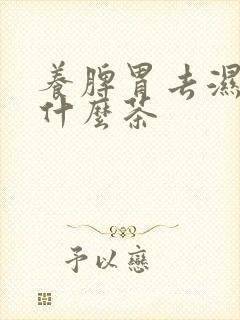 養脾胃去濕
什麼茶
予以戀